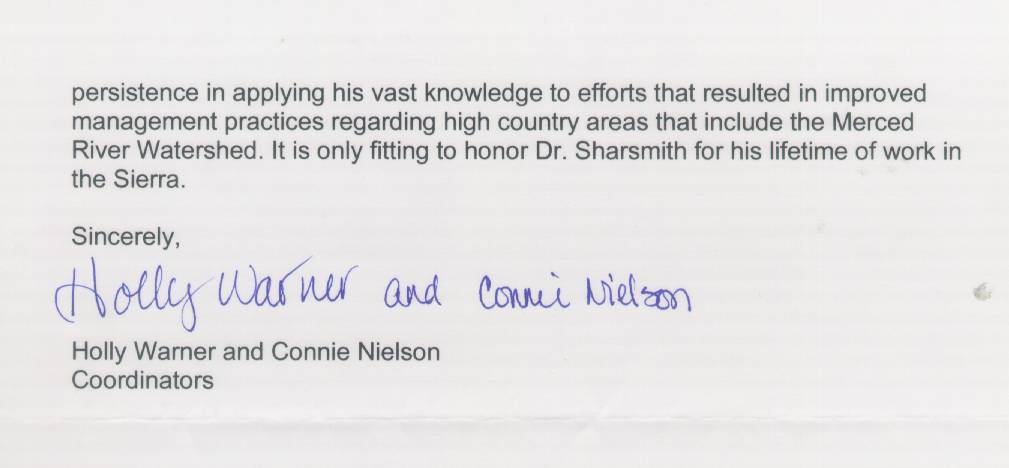 persistence in applying his vast knowledge to efforts that resulted in improved
management practices regarding high country areas that include the Merced
River Watershed. It is only fitting to honor Dr. Sharsmith for his lifetime of work in
the Sierra.
Sincerely,
Holly Warner and Connie Nielson
Holly Warner and Connie Nielson
Coordinators